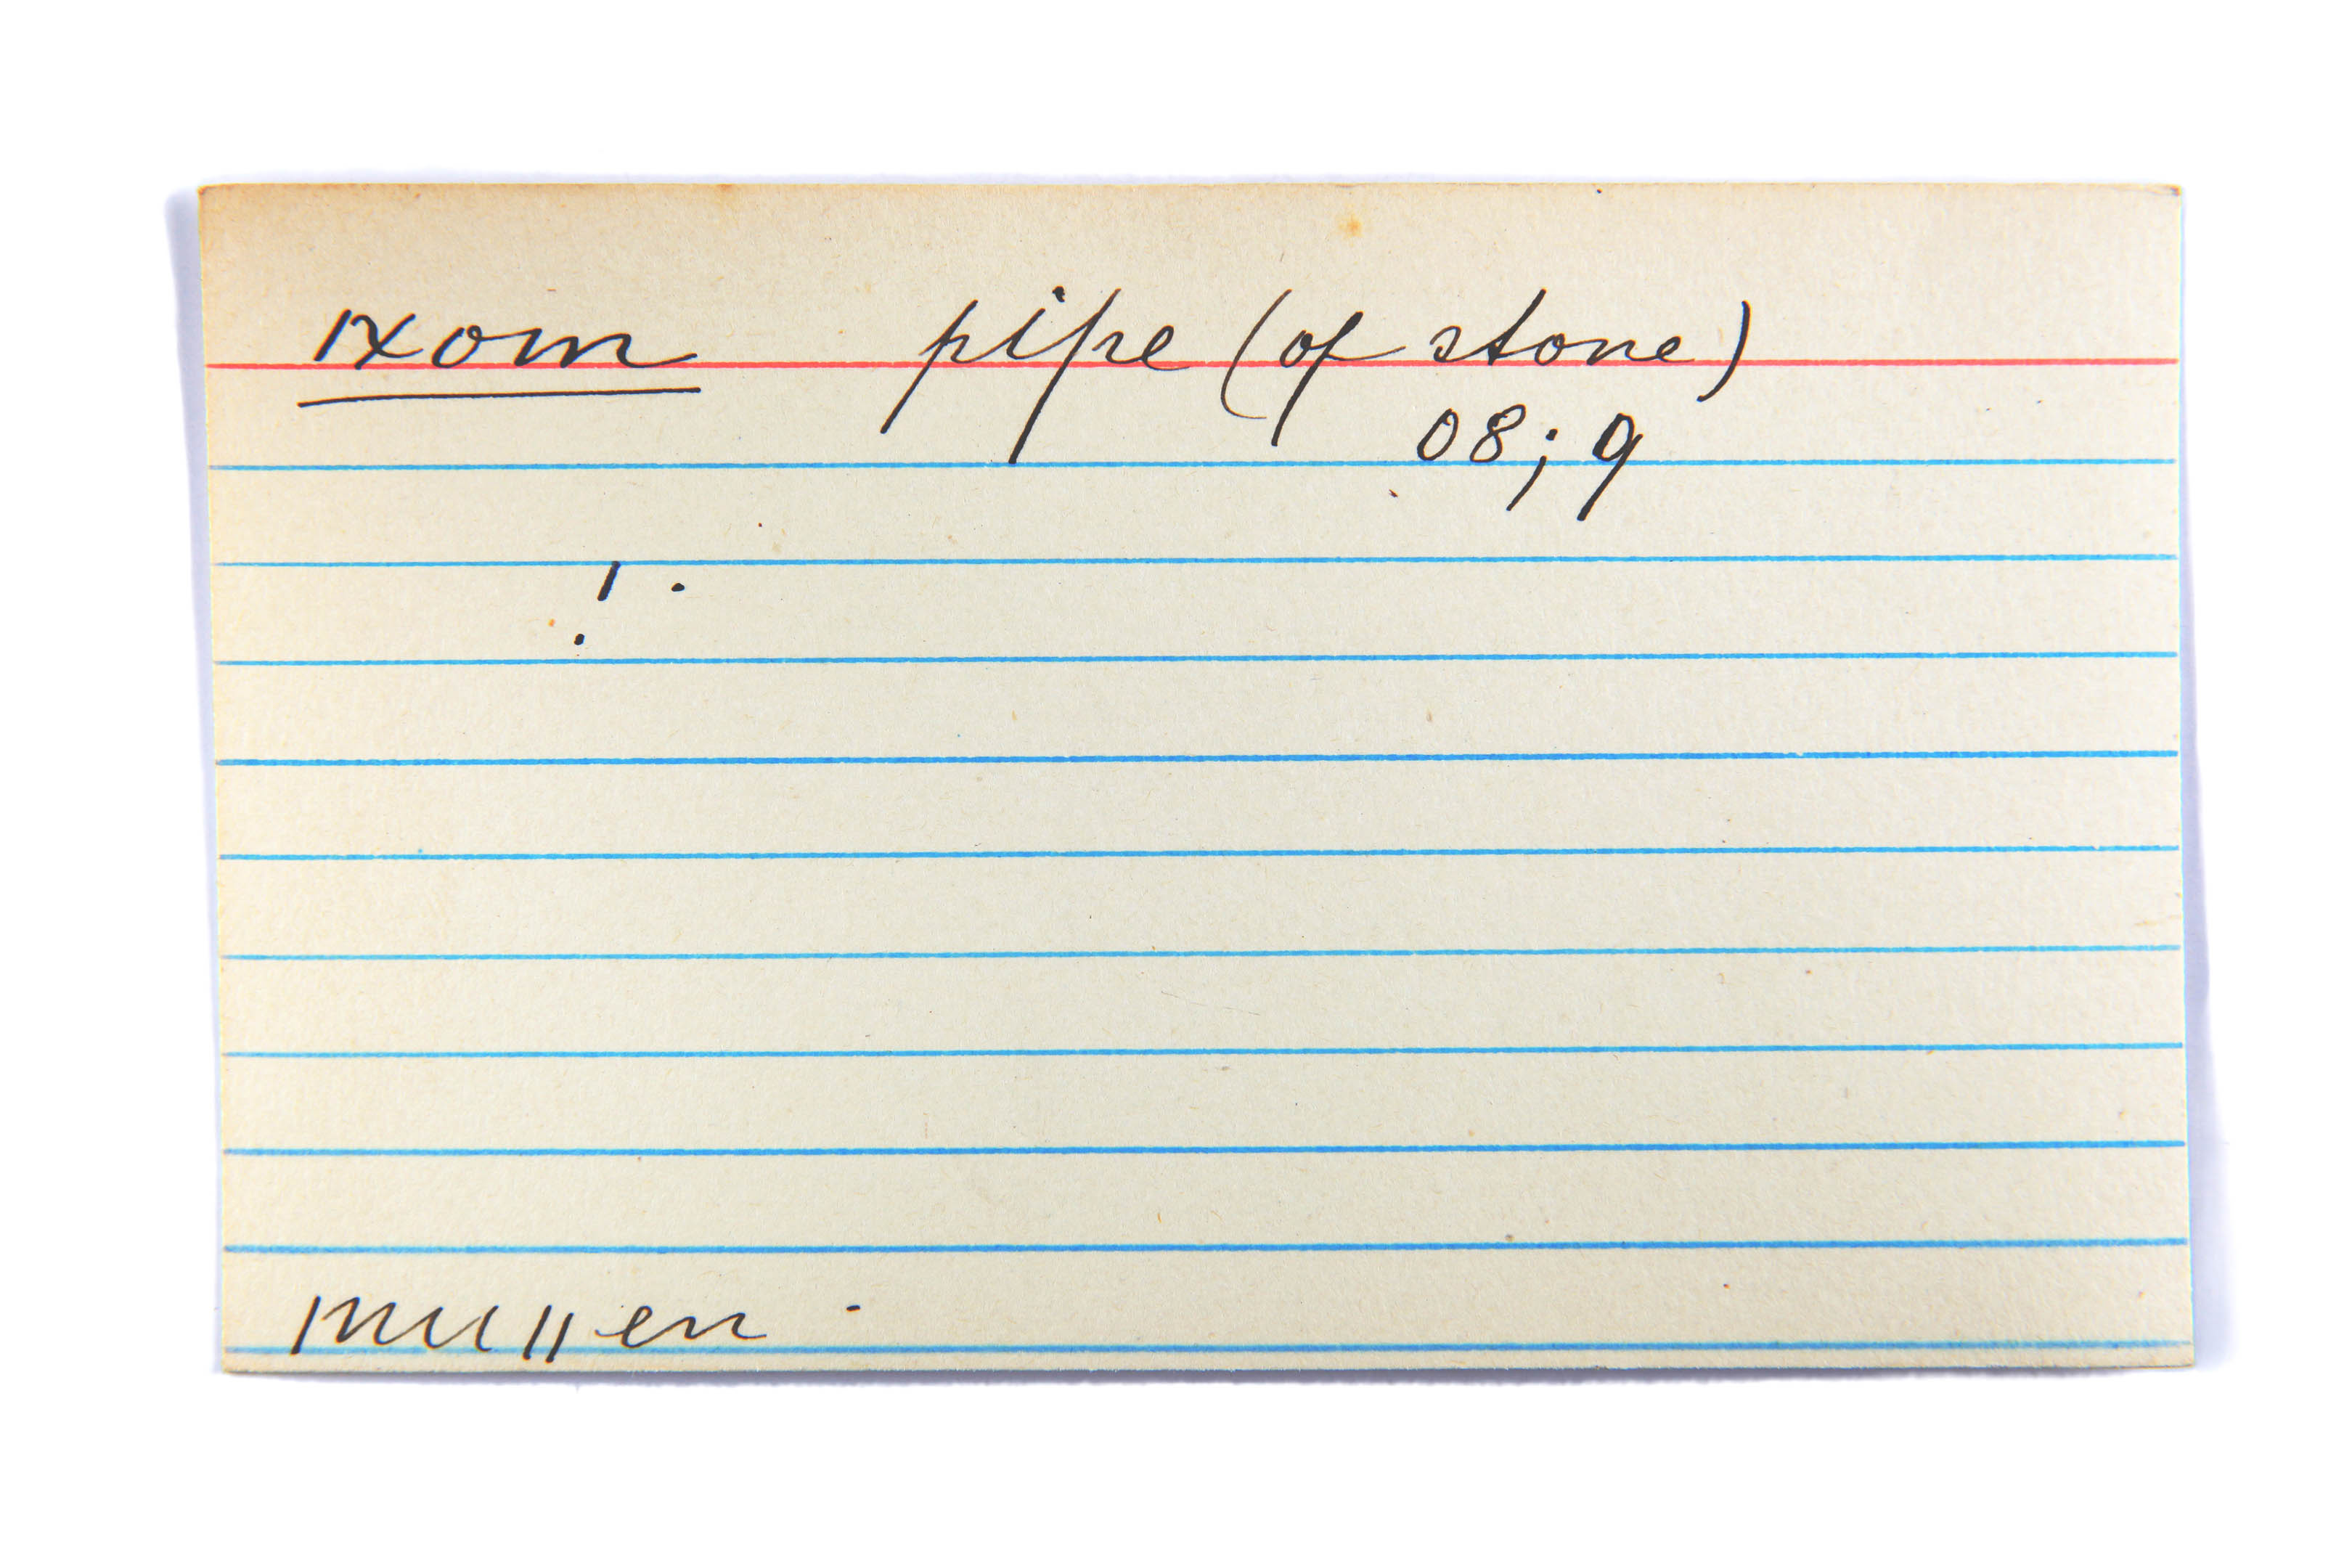 ixom pipe (of stone)
08; 9
! .
mullen .